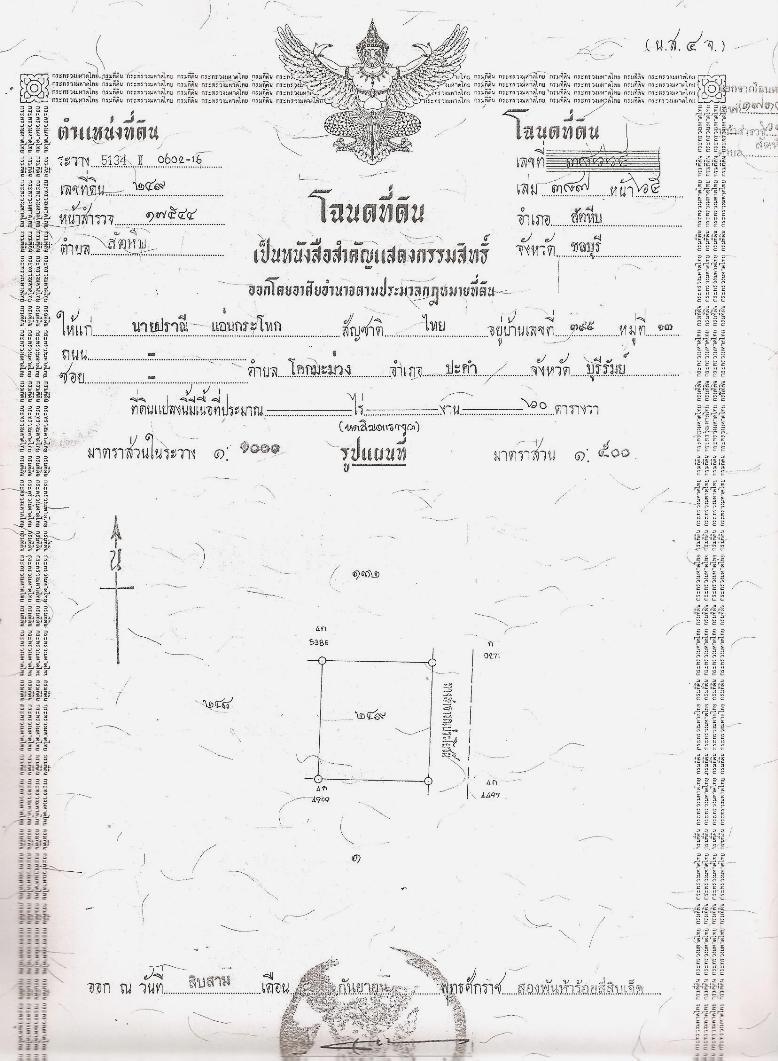 (น.ส. ๔ จ.)
ตำแหน่งที่ดิน
ระวาง 5134 II 0602-16
เลขที่ดิน ๒๔๙
หน้าสำรวจ ๑๗๕๔๔
ตำบล สัตหีบ
โฉนดที่ดิน
เลขที่
เล่ม ๓๘๗ หน้า ๖๕
อำเภอ สัตหีบ
จังหวัด ชลบุรี
โฉนดที่ดิน
เป็นหนังสือสำคัญแสดงกรรมสิทธิ์
ออกโดยอาศัยอำนาจตามประมวลกฎหมายที่ดิน
ให้แก่ นายปราณี แอ่นกระโทก สัญชาติ ไทย อยู่บ้านเลขที่ ๓๙๕ หมู่ที่ ๑๓
ถนน -
ซอย - ตำบล โคกมะม่วง อำเภอ ปะคำ จังหวัด บุรีรัมย์
ที่ดินแปลงนี้มีเนื้อที่ประมาณ ไร่ งาน ๖๐ ตารางวา
(หกสิบตารางวา)
มาตราส่วนในระวาง ๑: ๑๐๐๐ รูปแผนที่ มาตราส่วน ๑: ๕๐๐
น
๒๔๘
๒๔๙
ทางสาธารณประโยชน์
๑
ออก ณ วันที่ สิบสาม เดือน กันยายน พุทธศักราช สองพันห้าร้อยสี่สิบเอ็ด